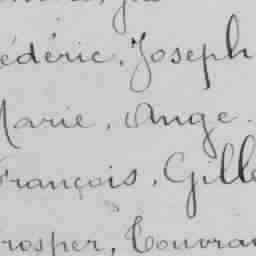 édéric, Joseph
Marie, Ange.
François, Gille
rosper, Touvra